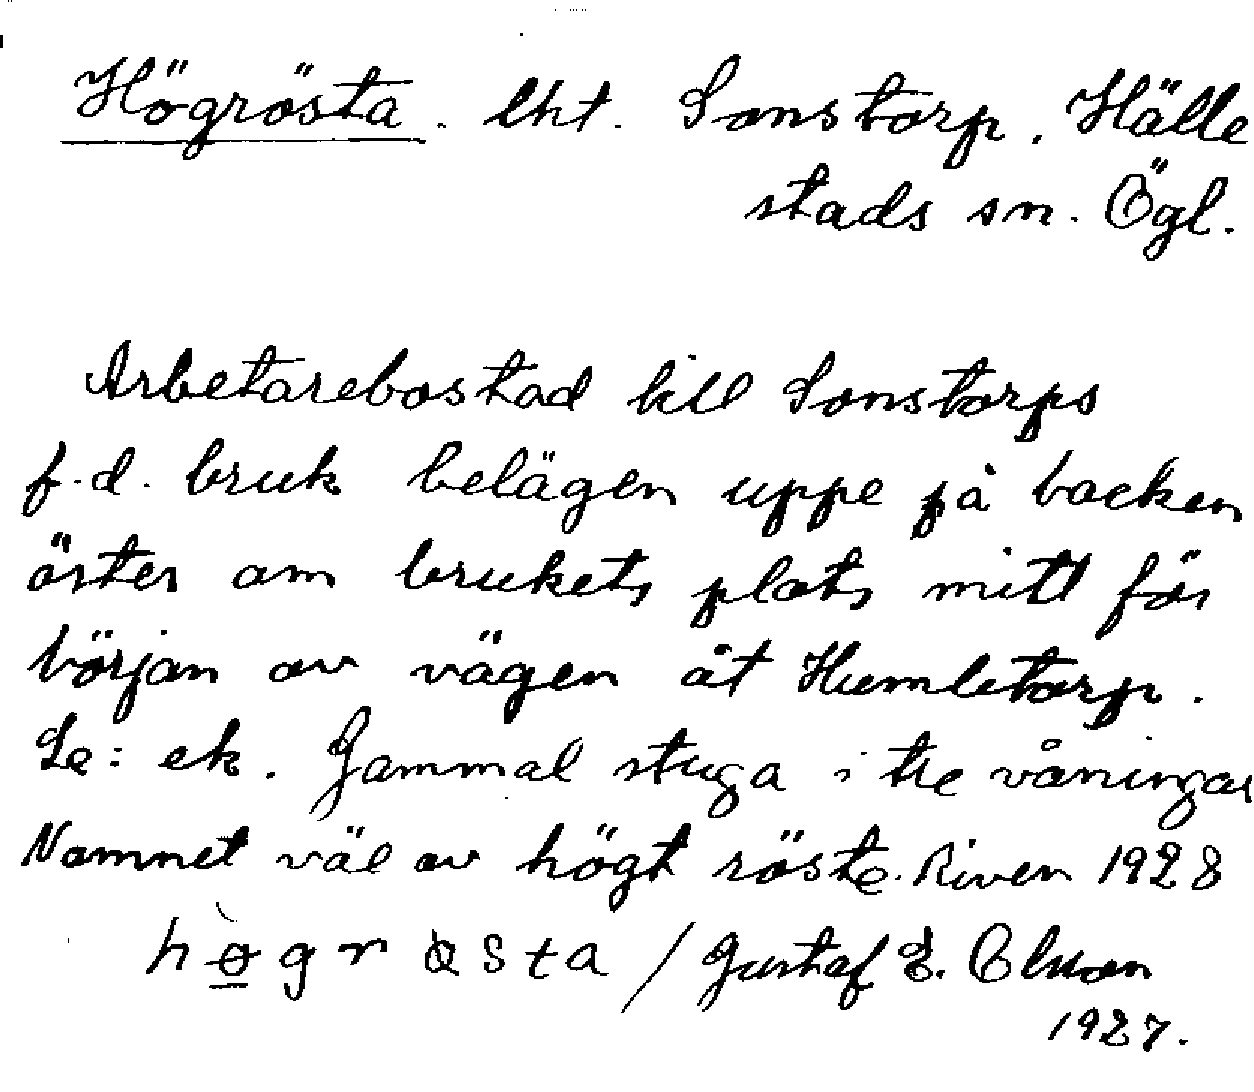 Högrösta. lht. Sonstorp. Hälle
stads sn. Ögl.
Arbetarebostad till Sonstorps
f.d. bruk belägen uppe på backen
öster om brukets plats mitt för
början av vägen åt Humletorp.
Se: ek. Gammal stuga i tre våningar
Namnet väl av högt röste. Riven 1928
högrösta / Gustaf E. Olsson
1927.